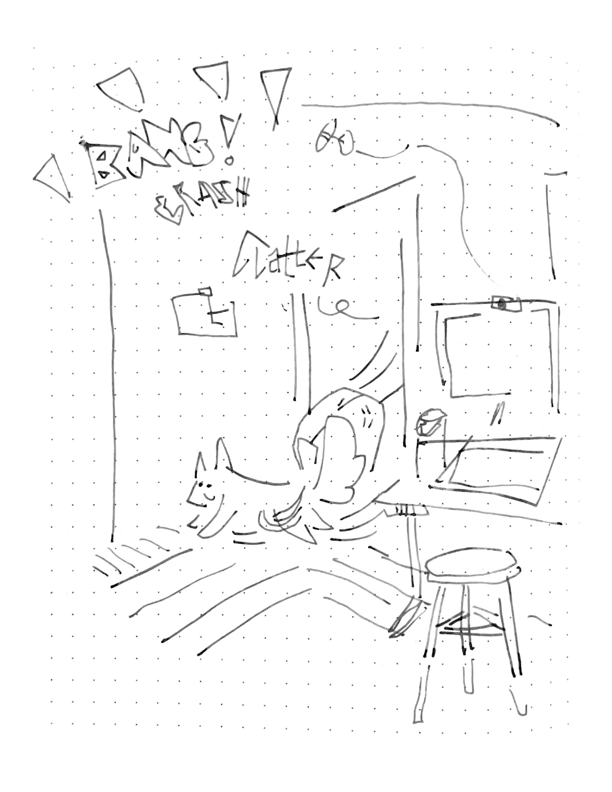 BAMB!
CRASH
ClatteR